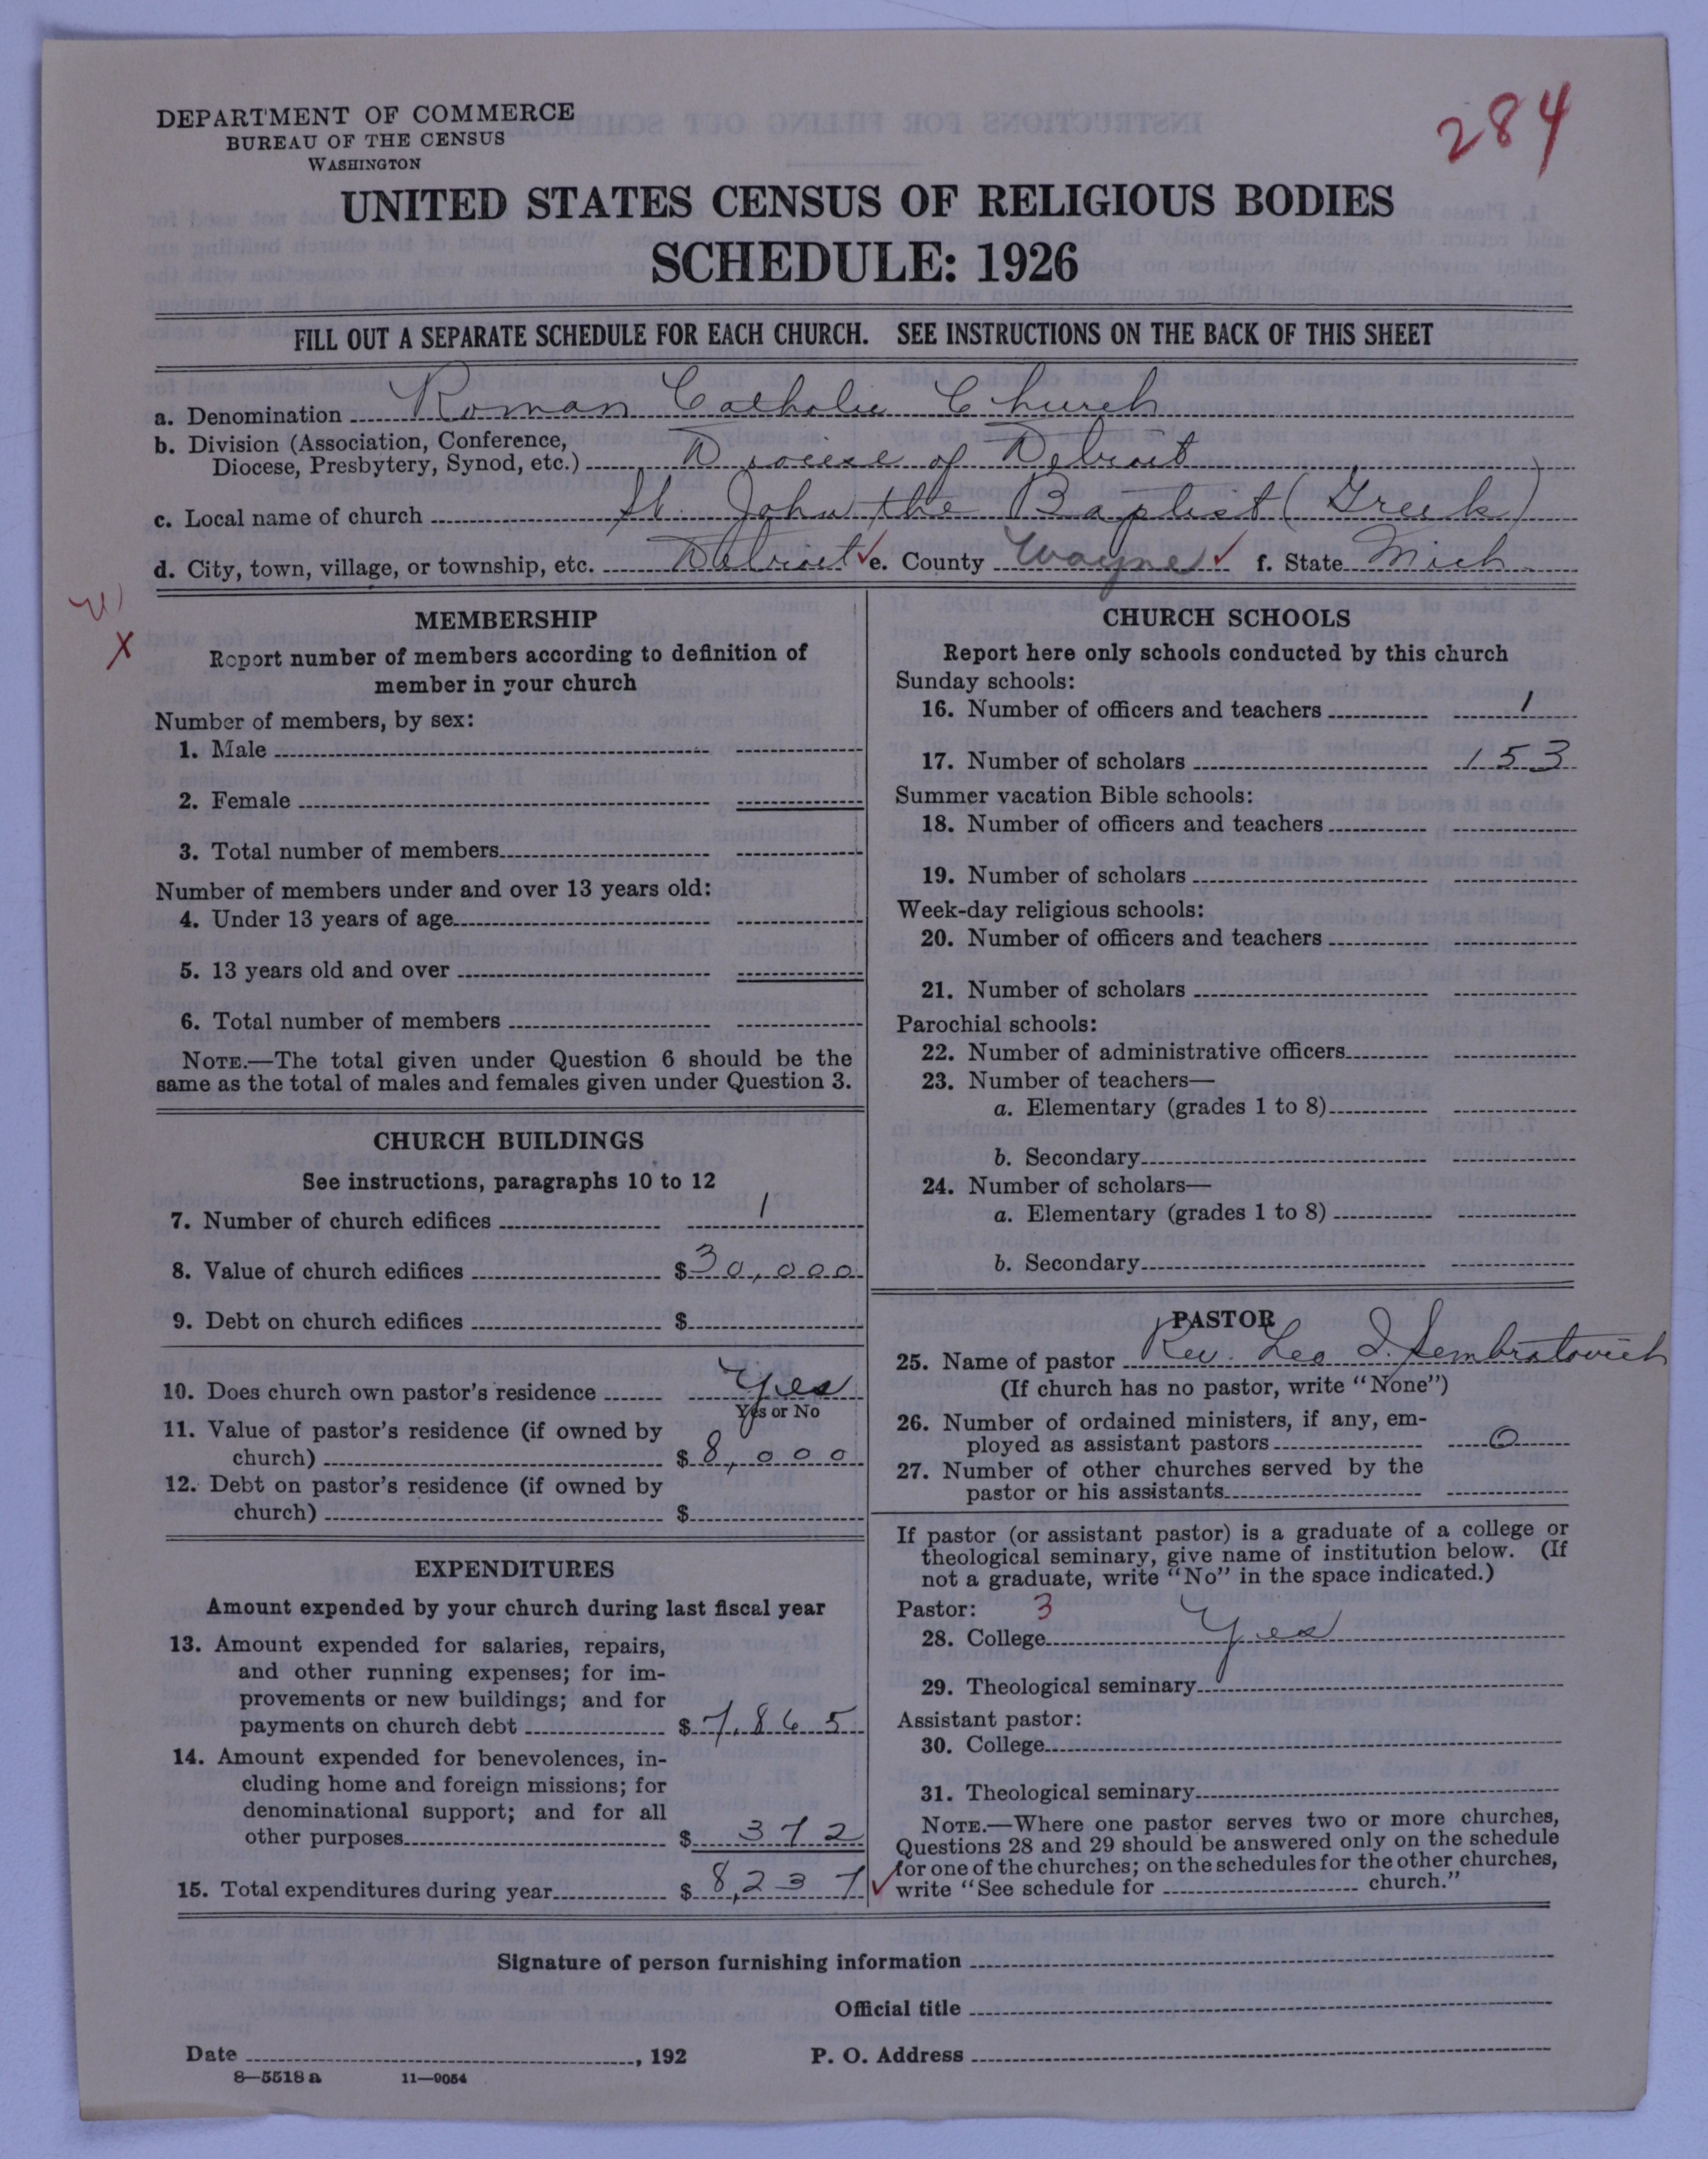 284
DEPARTMENT OF COMMERCE
BUREAU OF THE CENSUS
WASHINGTON
UNITED STATES CENSUS OF RELIGIOUS BODIES
SCHEDULE: 1926
FILL OUT A SEPARATE SCHEDULE FOR EACH CHURCH. SEE INSTRUCTIONS ON THE BACK OF THIS SHEET
a. Denomination Roman Catholic Church
b. Division (Association, Conference,
Diocese, Presbytery, Synod, etc.) Diocese of Detroit
c. Local name of church St. John the Baptist (Greek)
d. City, town, village, or township, etc. Detroit ✓ e. County Wayne ✓ f. State Mich.
X
MEMBERSHIP
Report number of members according to definition of
member in your church
Number of members, by sex:
1. Male
2. Female
3. Total number of members
Number of members under and over 13 years old:
4. Under 13 years of age
5. 13 years old and over
6. Total number of members
NOTE.—The total given under Question 6 should be the
same as the total of males and females given under Question 3.
CHURCH BUILDINGS
See instructions, paragraphs 10 to 12
7. Number of church edifices 1
8. Value of church edifices $30,000
9. Debt on church edifices $
10. Does church own pastor's residence Yes
Yes or No
11. Value of pastor's residence (if owned by
church) $8,000
12. Debt on pastor's residence (if owned by
church) $
EXPENDITURES
Amount expended by your church during last fiscal year
13. Amount expended for salaries, repairs,
and other running expenses; for im-
provements or new buildings; and for
payments on church debt $7,865
14. Amount expended for benevolences, in-
cluding home and foreign missions; for
denominational support; and for all
other purposes $372
15. Total expenditures during year $8,237 ✓
CHURCH SCHOOLS
Report here only schools conducted by this church
Sunday schools:
16. Number of officers and teachers 1
17. Number of scholars 153
Summer vacation Bible schools:
18. Number of officers and teachers
19. Number of scholars
Week-day religious schools:
20. Number of officers and teachers
21. Number of scholars
Parochial schools:
22. Number of administrative officers
23. Number of teachers—
a. Elementary (grades 1 to 8)
b. Secondary
24. Number of scholars—
a. Elementary (grades 1 to 8)
b. Secondary
PASTOR
25. Name of pastor Rev. Leo I. Sembratovich
(If church has no pastor, write "None")
26. Number of ordained ministers, if any, em-
ployed as assistant pastors 0
27. Number of other churches served by the
pastor or his assistants
If pastor (or assistant pastor) is a graduate of a college or
theological seminary, give name of institution below. (If
not a graduate, write "No" in the space indicated.)
Pastor: 3
28. College Yes
29. Theological seminary
Assistant pastor:
30. College
31. Theological seminary
NOTE.—Where one pastor serves two or more churches,
Questions 28 and 29 should be answered only on the schedule
for one of the churches; on the schedules for the other churches,
write "See schedule for church."
Signature of person furnishing information
Official title
Date , 192 P. O. Address
8—5518 a 11—9054